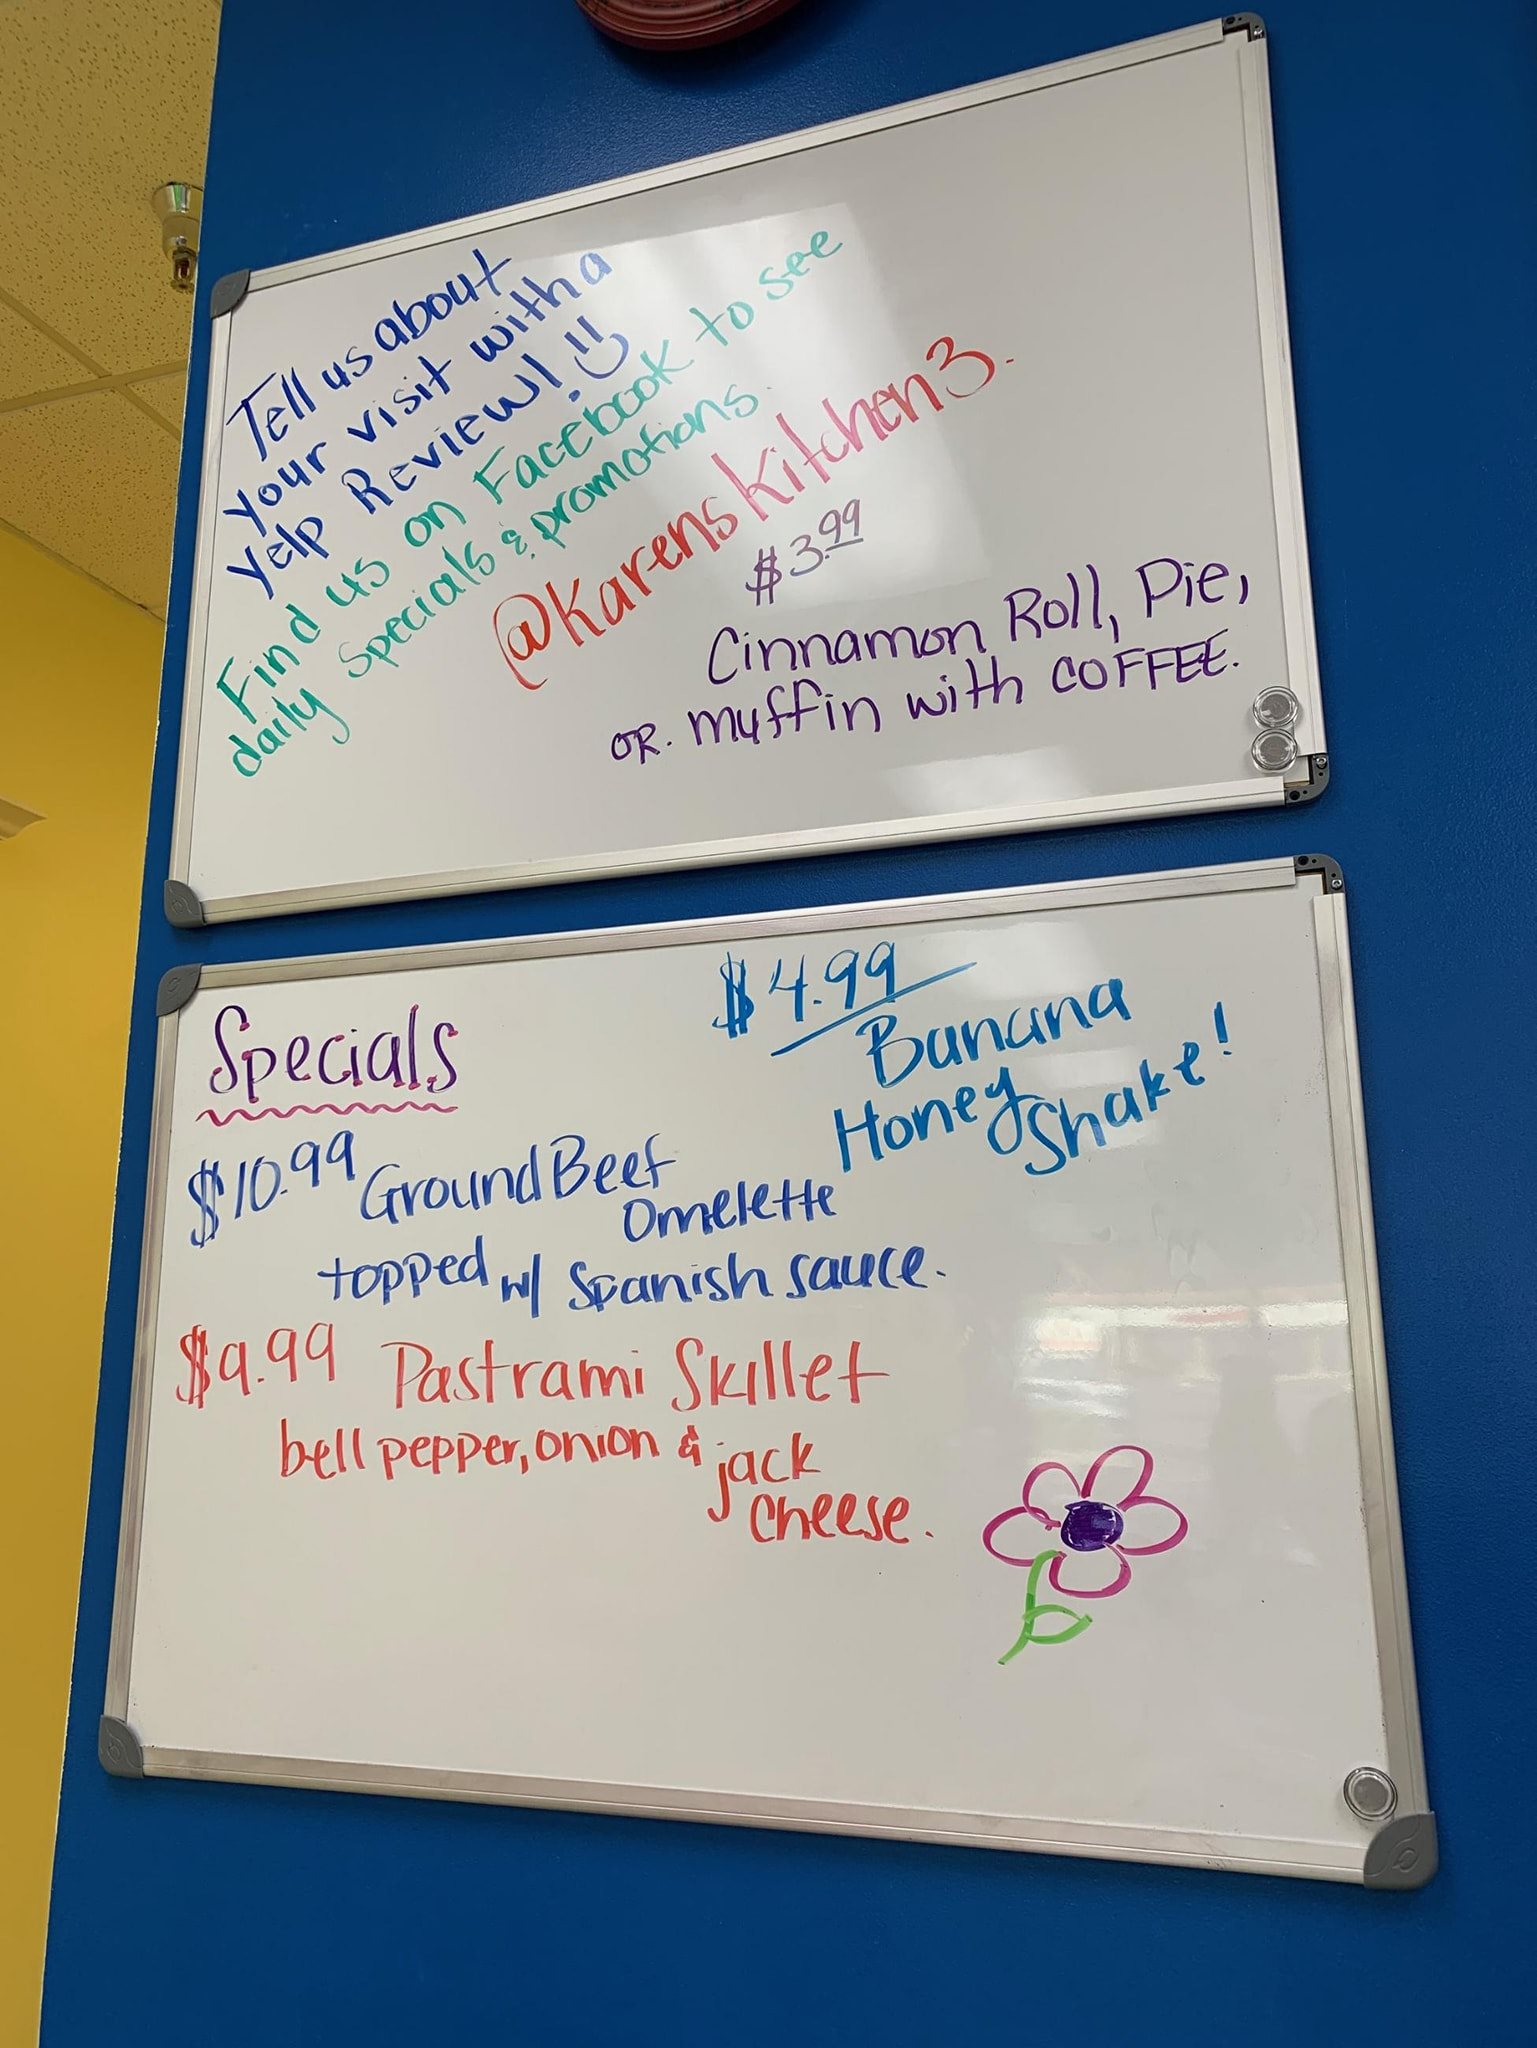 Tell us about
your visit with a
Yelp Review!
Find us on Facebook to see
daily specials & promotions.
@Karenskitchen3.
$3.99
Cinnamon Roll, Pie,
OR. muffin with COFFEE.
Specials
$4.99
Banana
Honey
Shake!
$10.99 Ground Beef
Omelette
topped w/ Spanish sauce.
$9.99 Pastrami Skillet
bell pepper, onion & jack
cheese.